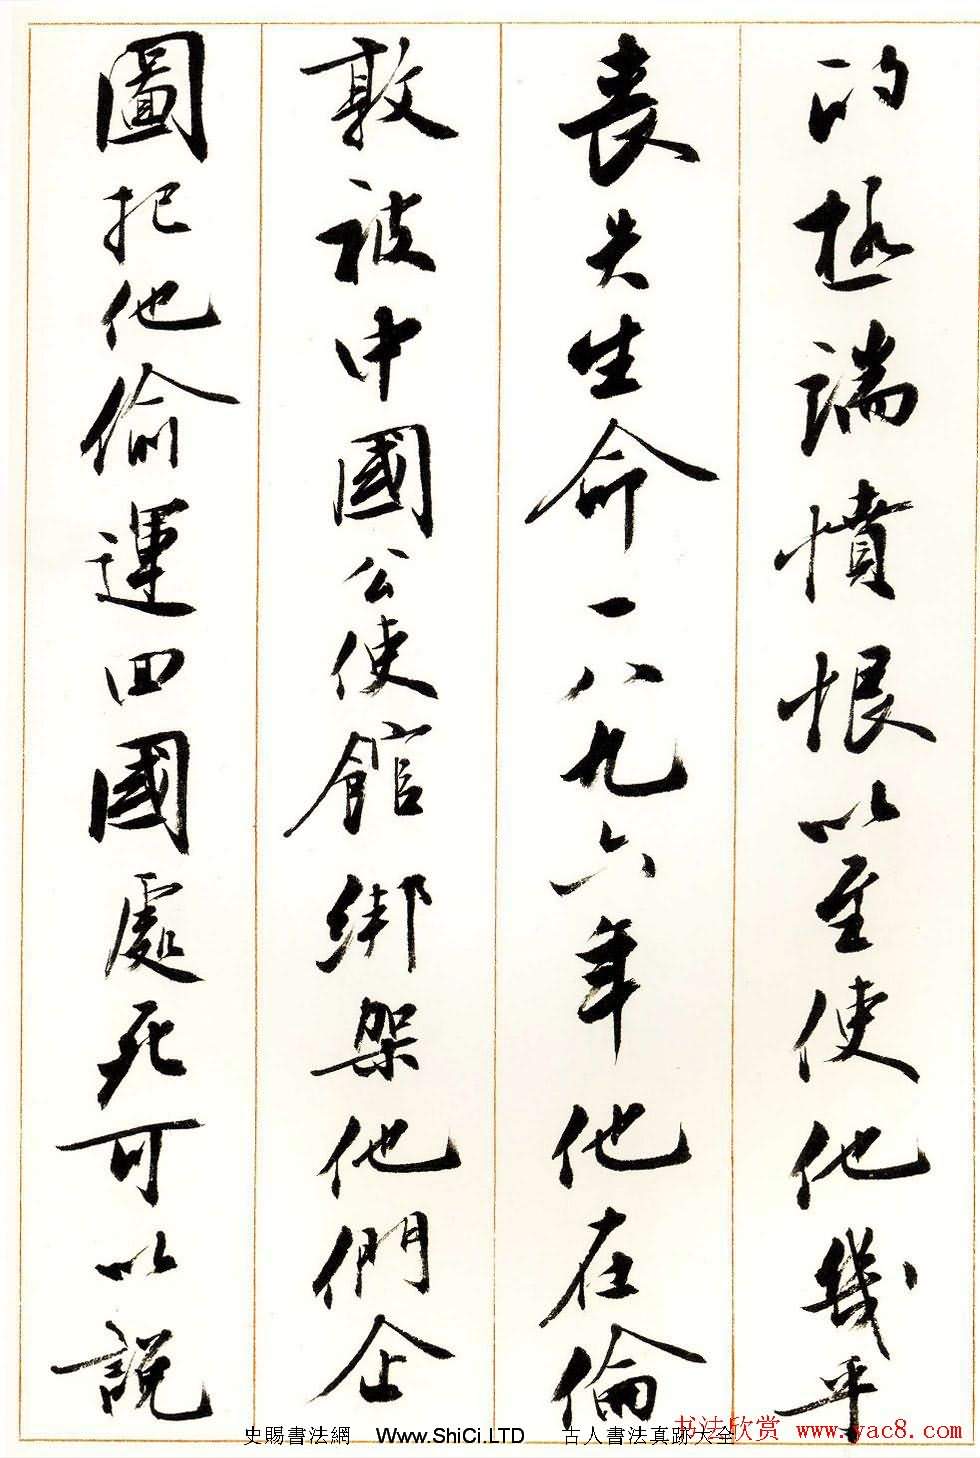 的極端憤恨以至使他幾乎
喪失生命一八九六年他在倫
敦被中國公使館綁架他們企
圖把他偷運回國處死可以說
史賜書法網 Www.ShiCi.LTD 古人書法真跡大全
书法欣赏 www.yac8.com